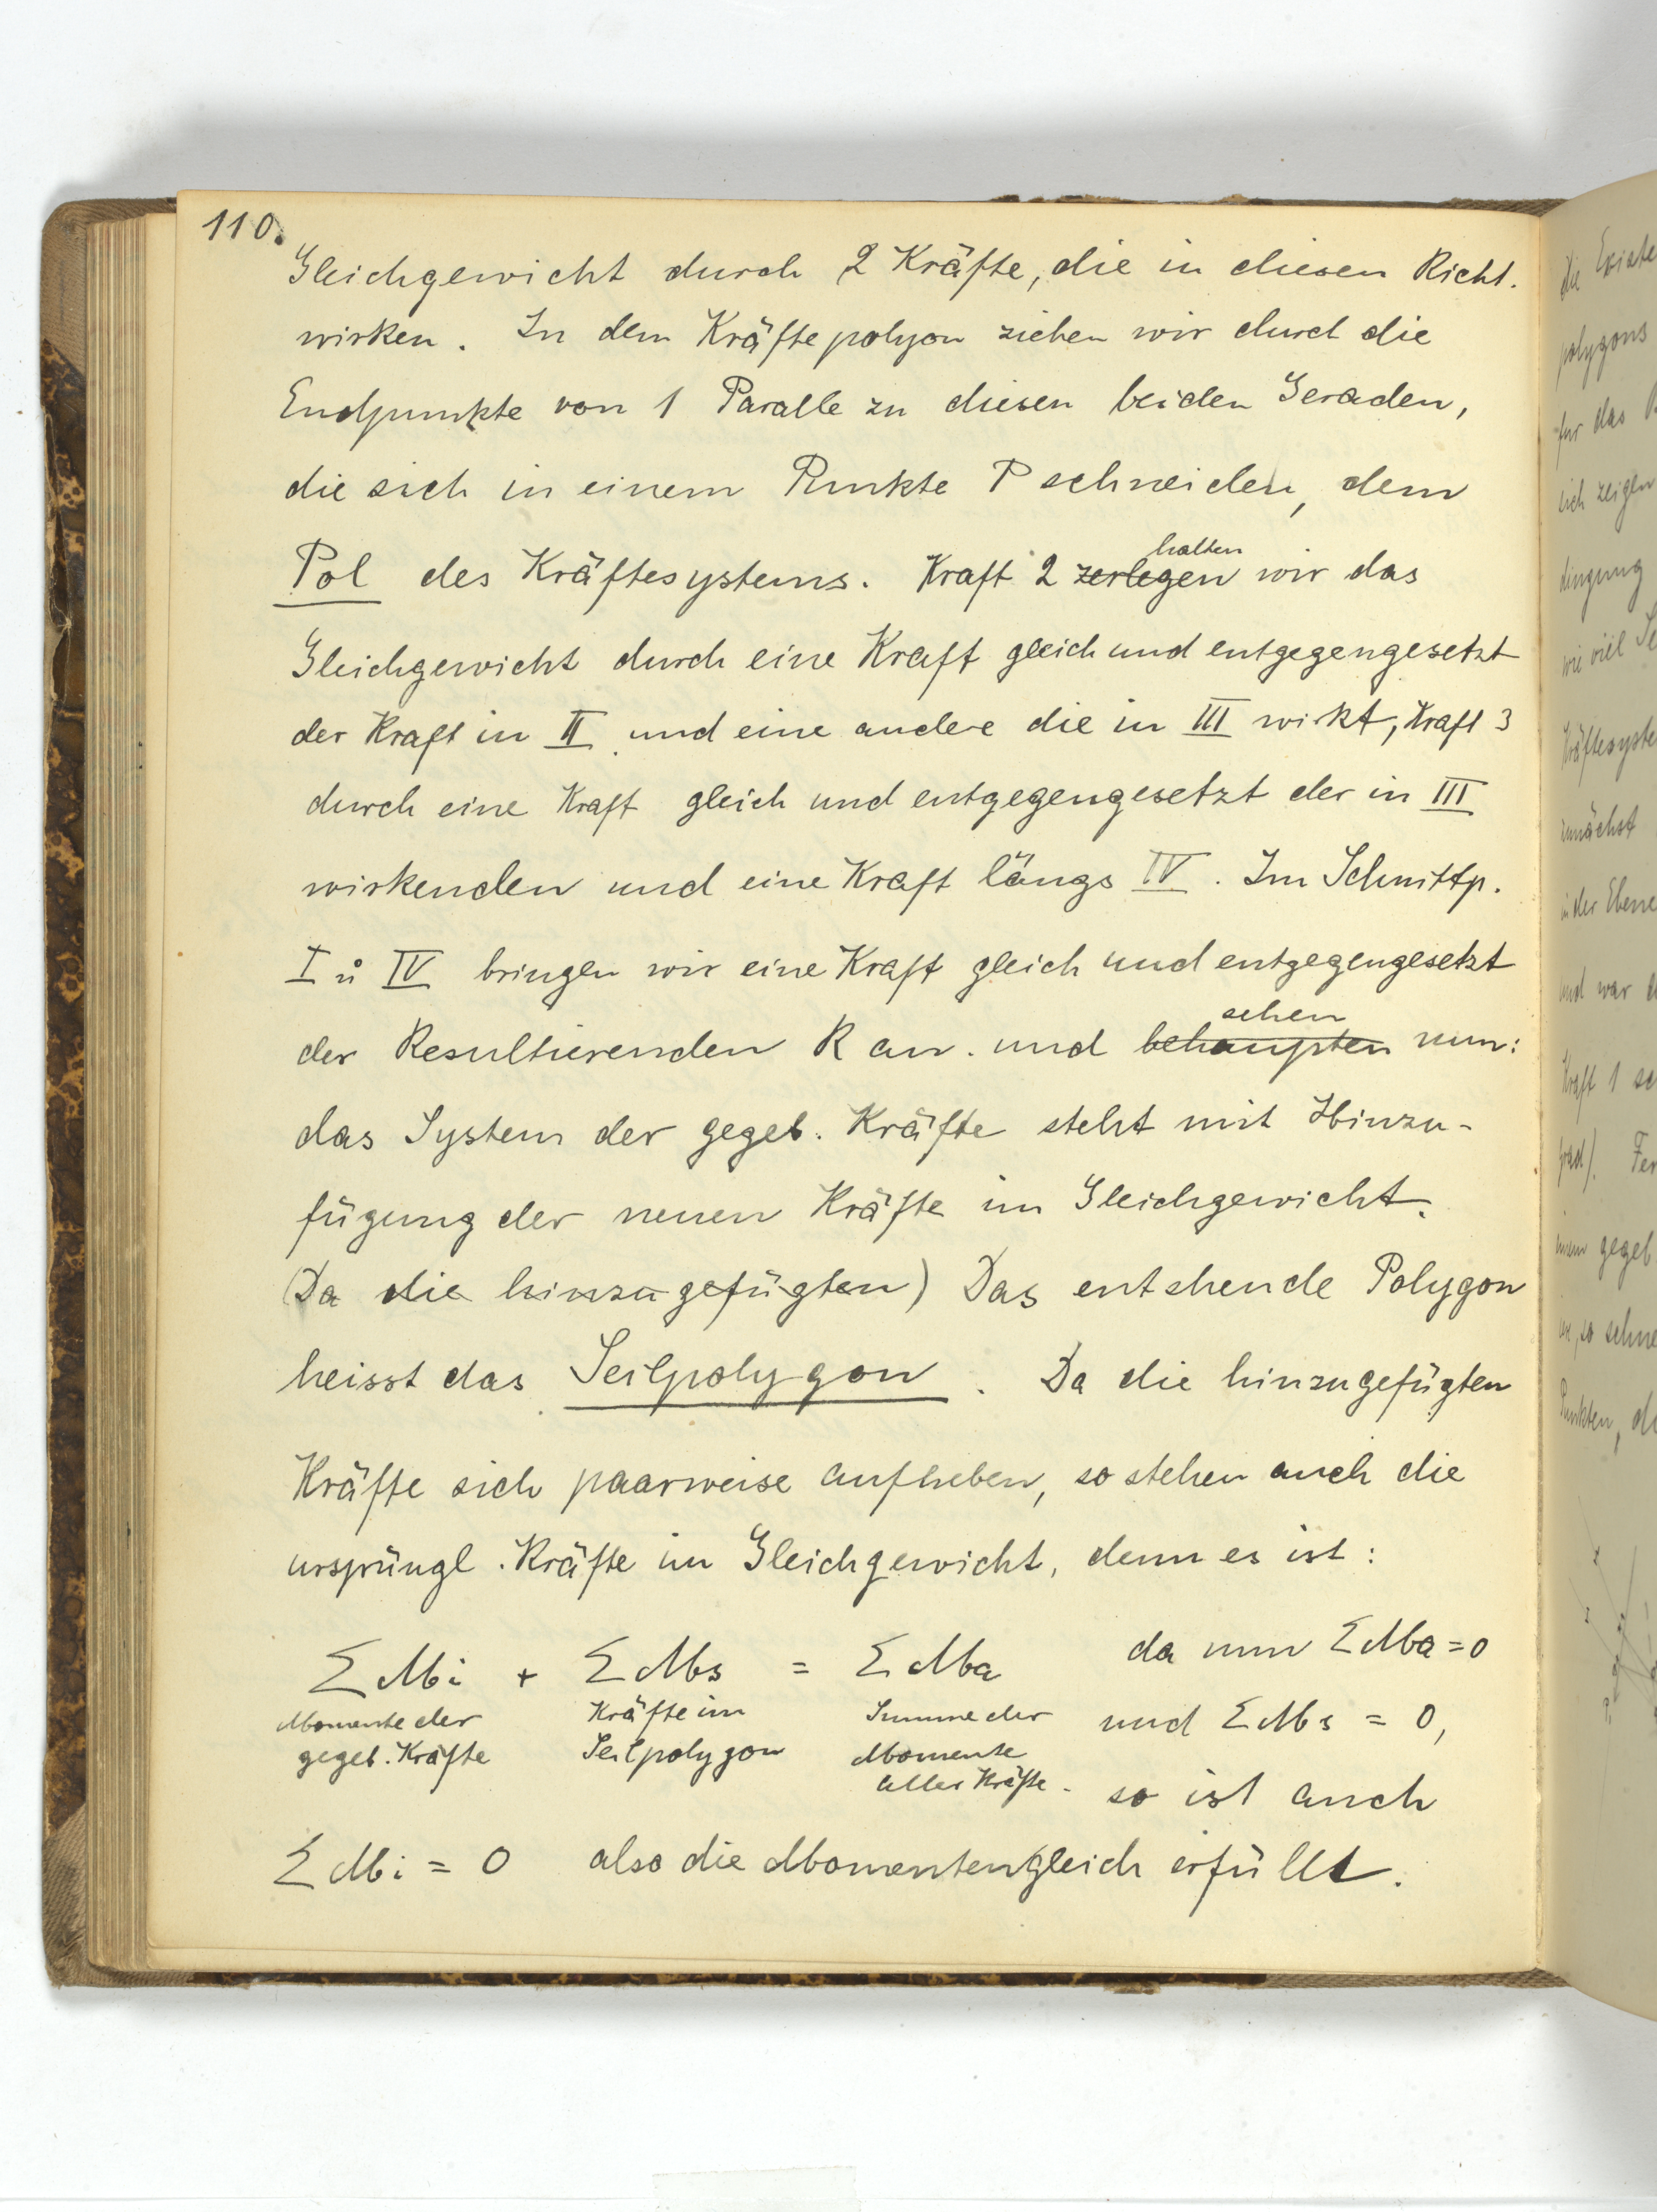 110.
Gleichgewicht durch 2 Kräfte, die in diesen Richt.
wirken. In dem Kräftepolyon ziehen wir durch die
Endpunkte von 1 Paralle zu diesen beiden Geraden,
die sich in einem Punkte P schneiden, dem
Pol des Kräftesystems. Kraft 2 zerlegen wir das
halten
Gleichgewicht durch eine Kraft gleich und entgegengesetzt
der Kraft in II und eine andere die in III wirkt, Kraft 3
durch eine Kraft gleich und entgegengesetzt der in III
wirkenden und eine Kraft längs IV. Im Schnittp.
I u IV bringen wir eine Kraft gleich und entgegengesetzt
der Resultierenden R an. und behaupten nun:
sehen
das System der gegeb. Kräfte steht mit Hinzu-
fügung der neuen Kräfte im Gleichgewicht.
(Da die hinzugefügten) Das entshende Polygon
heisst das Seilpolygon. Da die hinzugefügten
Kräfte sich paarweise aufheben, so stehen auch die
ursprüngl. Kräfte im Gleichgewicht, denn es ist:
Σ Mi + Σ Ms = Σ Ma da nun Σ Ma = 0
Momente der Kräfte im Summe der und Σ Ms = 0,
gegeb. Kräfte Seilpolygon Momente
aller Kräfte. so ist auch
Σ Mi = 0 also die Momentengleich erfüllt.
die
polygons
für das
sich zeigen
dingung
wie viel
Kräftesyste
zunächst
in der Ebene
und war
Kraft 1
gegeb
so schne
Punkten,